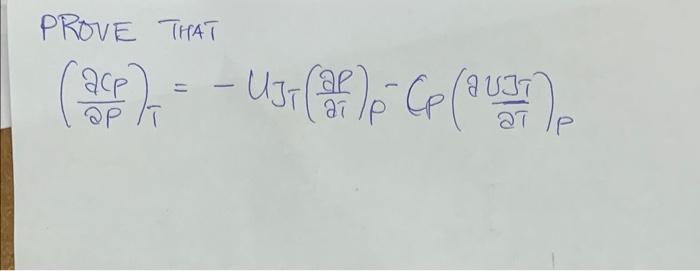 PROVE THAT
(∂CP/∂P)T = - UJT(∂P/∂T)P - CP(∂UJT/∂T)P